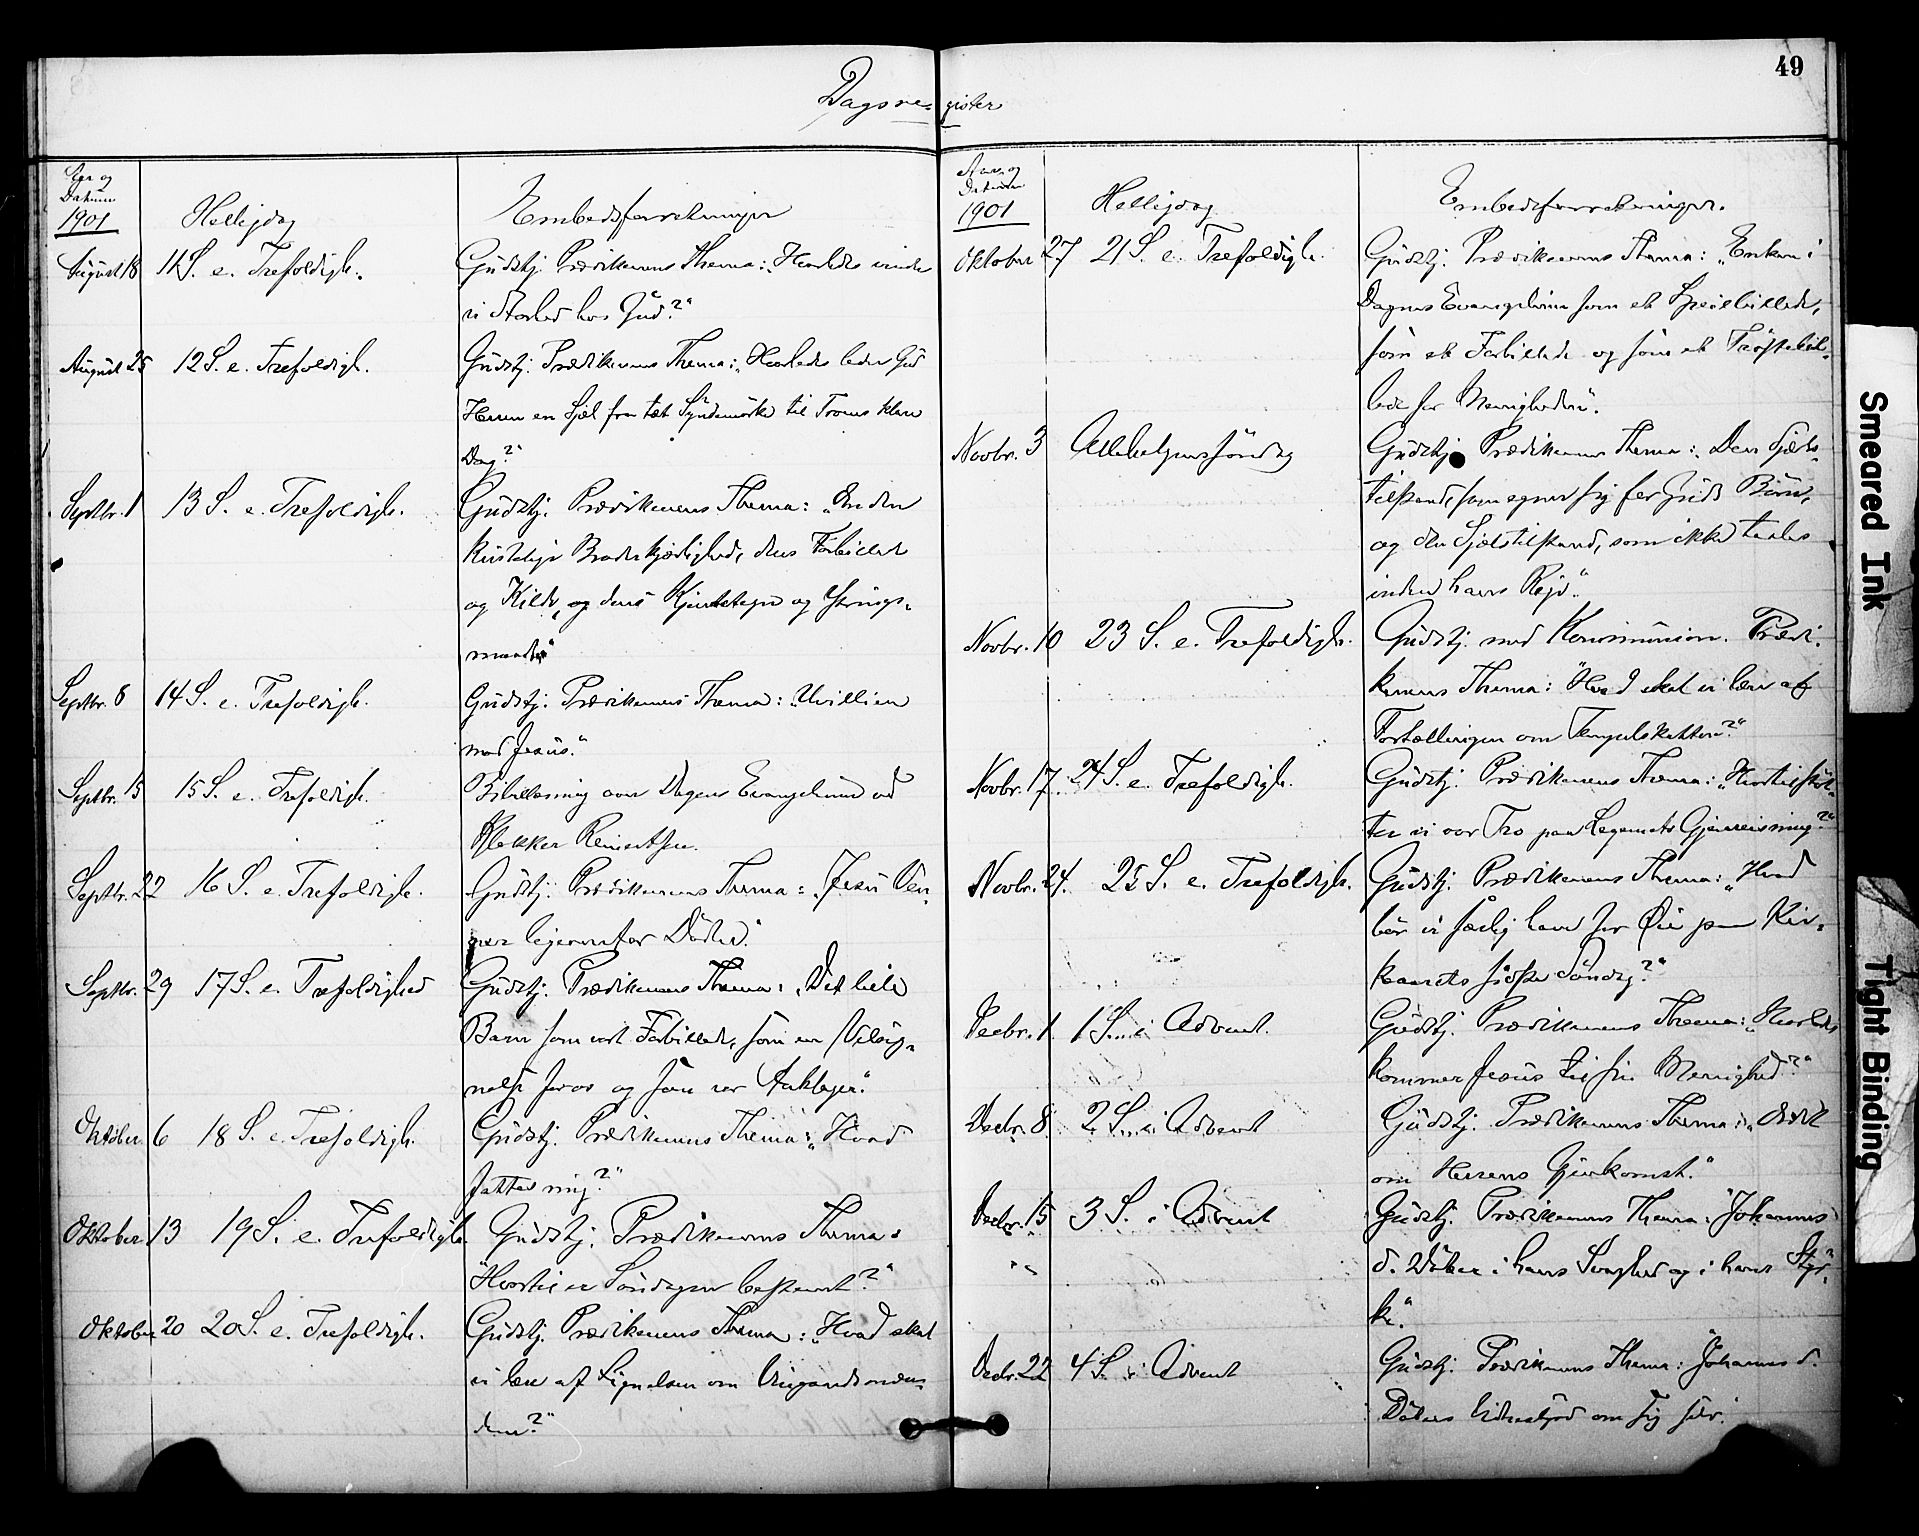 49
Dagsregister
Aar og
Datum
1901 Helligdag Embedsforretninger
August 18 11 S. e. Trefoldigh. Gudstj. Prædikenens Thema: „Hvorledes vinde
vi Storhed hos Gud?“
August 25 12 S. e. Trefoldigh. Gudstj. Prædikenens Thema: „Hvorledes leder Gud
Herren en Sjæl fra tæt Syndemørke til Troens klare
Dag?“
Septbr. 1 13 S. e. Trefoldigh. Gudstj. Prædikenens Thema: „Om den
kristelige Broderkjærlighed, dens Forbillede
og Kilde, og dens Kjendetegn og Ytrings-
maade“
Septbr. 8 14 S. e. Trefoldigh. Gudstj. Prædikenens Thema: „Uvillien
mod Jesus.“
Septbr. 15 15 S. e. Trefoldigh. Bibellæsning over Dagens Evangelium ved
Klokker Reinertsen.
Septbr. 22 16 S. e. Trefoldigh. Gudstj. Prædikenens Thema: „Jesu Ven-
ner ligeoverfor Døden.“
Septbr. 29 17 S. e. Trefoldighed Gudstj. Prædikenens Thema: „Det lille
Barn som vort Forbillede, som en Velsig-
nelse for os og som vor Anklager.“
Oktober 6 18 S. e. Trefoldigh. Gudstj. Prædikenens Thema: „Hvad
fattes mig?“
Oktober 13 19 S. e. Trefoldigh. Gudstj. Prædikenens Thema:
„Hvortil er Søndagen bestemt?“
Oktober 20 20 S. e. Trefoldigh. Gudstj. Prædikenens Thema: „Hvad skal
vi lære af Lignelsen om Vingaardsmæn-
dene?“
Aar og
Datum
1901 Helligdag Embedsforretninger.
Oktober 27 21 S. e. Trefoldigh. Gudstj. Prædikenens Thema: „Enken i
Dagens Evangelium som et Speilbillede,
som et Forbillede og som et Trøstebil-
lede for Menigheden“.
Novbr. 3 Allehelgenssøndag Gudstj. Prædikenens Thema: „Den Sjæls-
tilstand, som egner sig for Guds Børn,
og den Sjælstilstand, som ikke taales
inden hans Rige“.
Novbr. 10 23 S. e. Trefoldigh. Gudstj. med Kommunion. Prædi-
kenens Thema: „Hvad skal vi lære af
Fortællingen om Tempelskatten?“
Novbr. 17. 24 S. e. Trefoldigh. Gudstj. Prædikenens Thema: „Hvortil støt-
ter vi vor Tro paa Legemets Gjenreisning?“
Novbr. 24. 25 S. e. Trefoldigh. Gudstj. Prædikenens Thema: „Hvad
bør vi særlig have for Øie paa Kir-
keaarets sidste Søndag?“
Decbr. 1 1 S. i Advent. Gudstj. Prædikenens Thema: „Hvorledes
kommer Jesus til sin Menighed?“
Decbr. 8 2 S. i Advent Gudstj. Prædikenens Thema: „Ordet
om Herrens Gjenkomst.“
Decbr. 15 3 S. i Advent Gudstj. Prædikenens Thema: „Johannes
d. Døber i hans Svaghed og i hans Styr-
ke.“
Decbr. 22 4 S. i Advent Gudstj. Prædikenens Thema: „Johannes d.
Døbers Vidnesbyrd om sig selv.“
Smeared Ink
Tight Binding